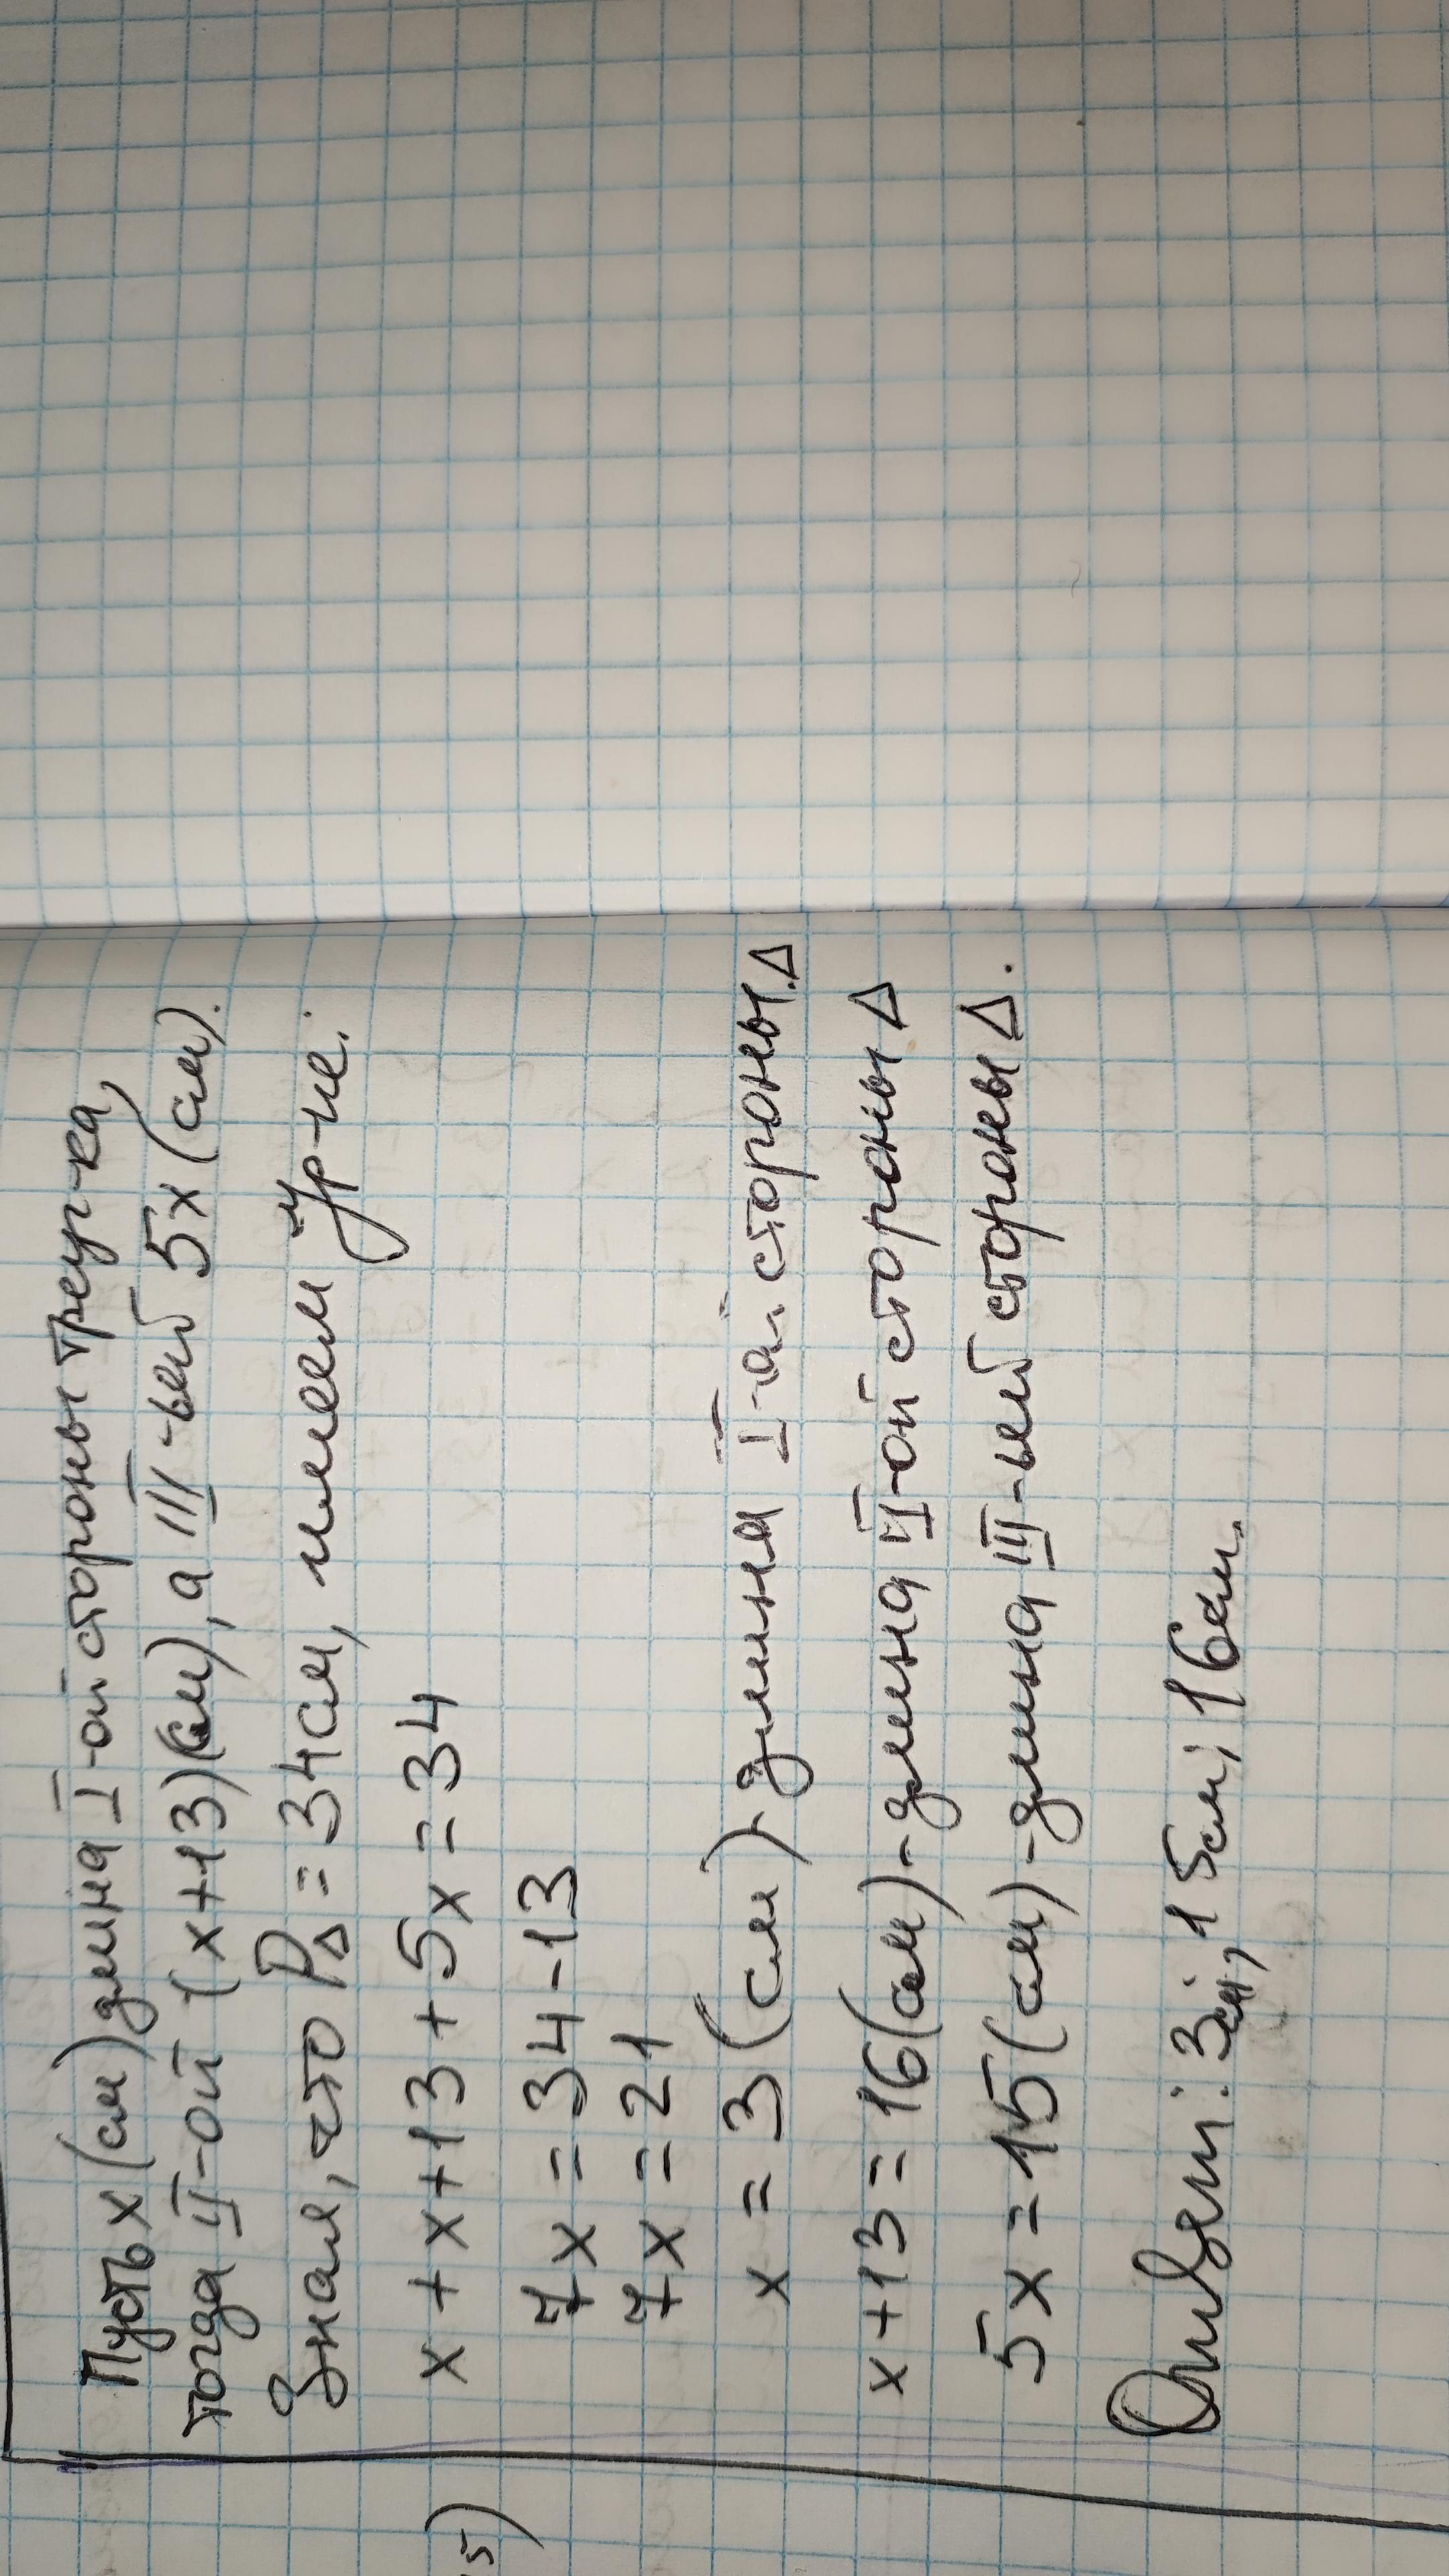 Пусть x (см) длина I-ой стороны треуг-ка,
тогда II-ой (x+13)(см), а III-ьей 5x (см).
Зная, что P△ = 34см, имеем ур-ие:
x + x + 13 + 5x = 34
7x = 34 - 13
7x = 21
x = 3 (см) - длина I-ой стороны △
x + 13 = 16 (см) - длина II-ой стороны △
5x = 15 (см) - длина III-ьей стороны △.
Ответ: 3см; 15см; 16см.
5)